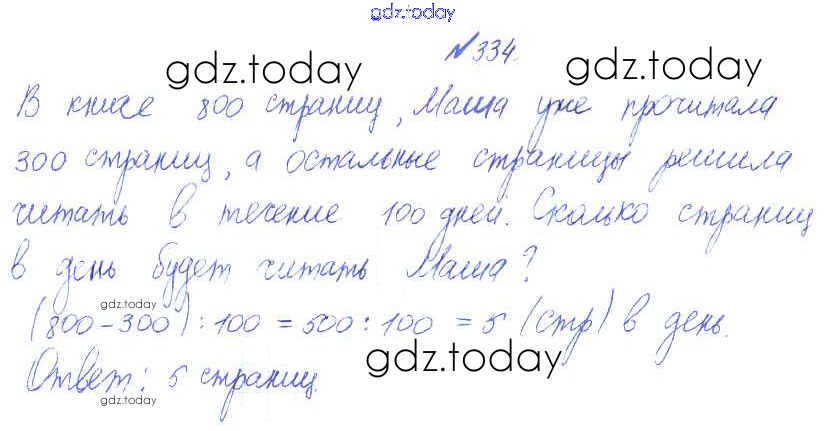 gdz.today
№ 334.
gdz.today gdz.today
В книге 800 страниц, Маша уже прочитала
300 страниц, а остальные страницы решила
читать в течение 100 дней. Сколько страниц
в день будет читать Маша?
gdz.today
(800-300):100 = 500:100 = 5 (стр) в день.
gdz.today
Ответ: 5 страниц.
gdz.today